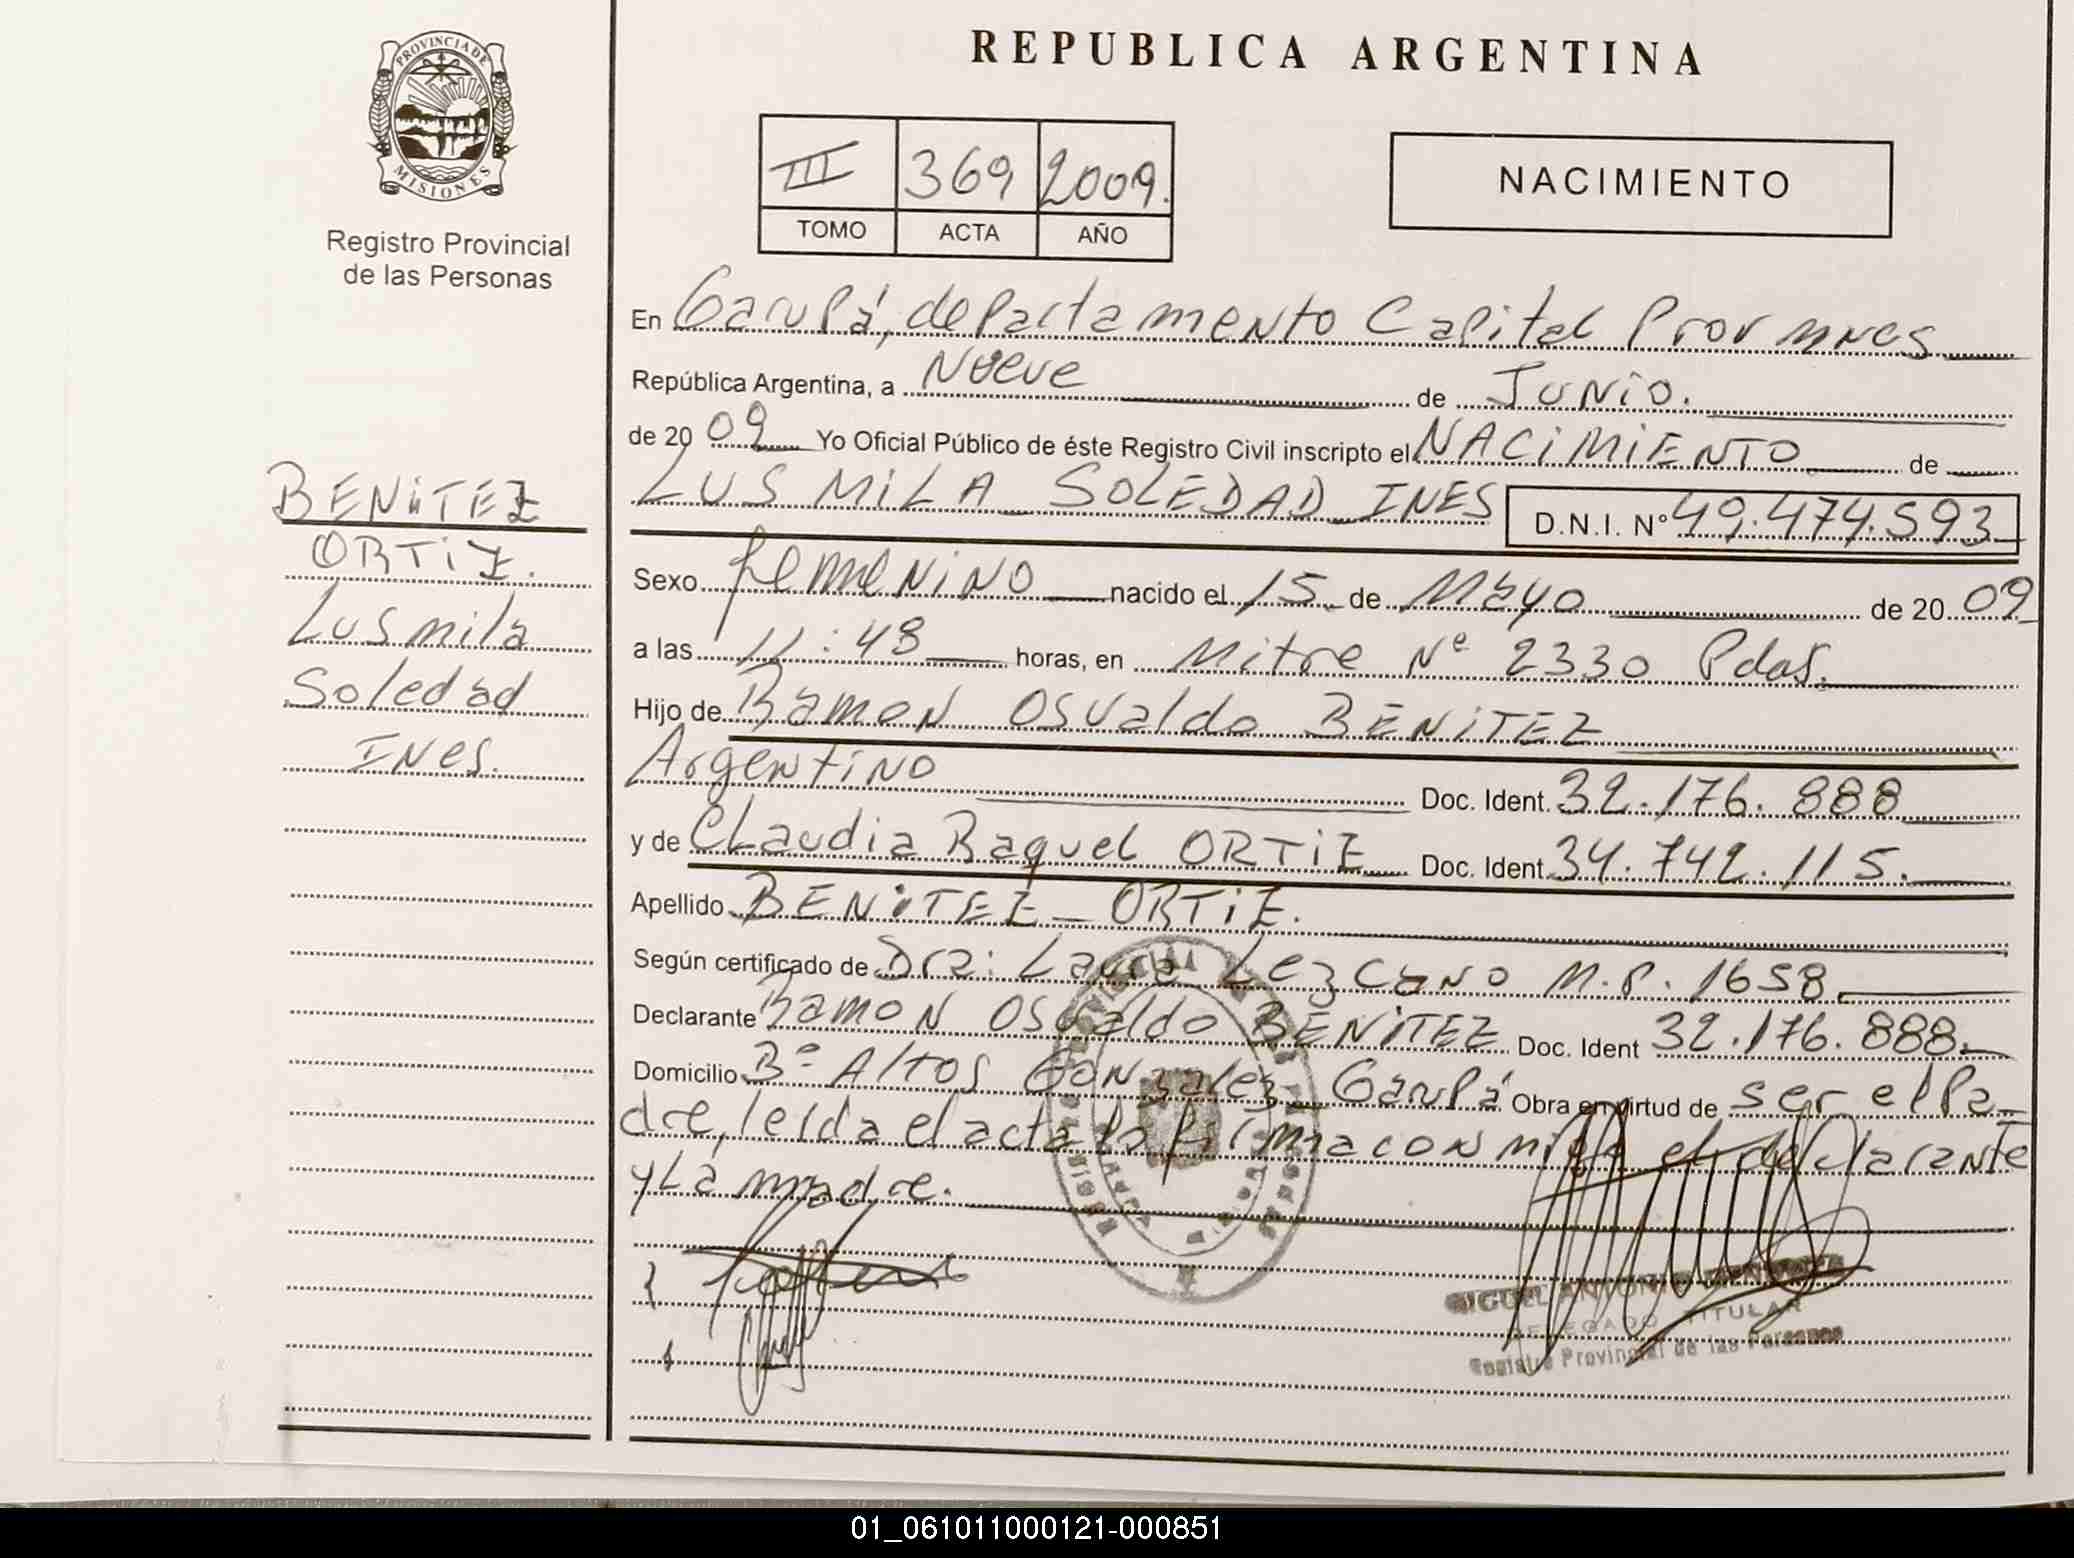 PROVINCIA DE
MISIONES
Registro Provincial
de las Personas
BENITEZ
ORTIZ.
Lusmila
Soledad
INes.
REPUBLICA ARGENTINA
III 369 2009.
TOMO ACTA AÑO
NACIMIENTO
En Garupá, departamento Capital Prov mnes
República Argentina, a Nueve de Junio.
de 2009 Yo Oficial Público de éste Registro Civil inscripto el NACIMIENTO de
LUSMILA SOLEDAD INES D.N.I. Nº 49.474.593
Sexo femenino nacido el 15 de Mayo de 2009
a las 11:48 horas, en Mitre Nº 2330 Pdas.
Hijo de Ramon Osvaldo BENITEZ
Argentino Doc. Ident. 32.176.888
y de Claudia Raquel ORTIZ Doc. Ident. 34.742.115.
Apellido BENITEZ _ ORTIZ.
Según certificado de Dra: Laura Lezcano M.P. 1658
Declarante Ramon Osvaldo BENITEZ Doc. Ident 32.176.888.
Domicilio Bº Altos Gonzalez _ Garupá Obra en virtud de ser el Pa_
dre, leida el acta la firma con migo el declarante
y La madre.
MIGUEL ANTONIO
DELEGADO TITULAR
Registro Provincial de las Personas
01_061011000121-000851